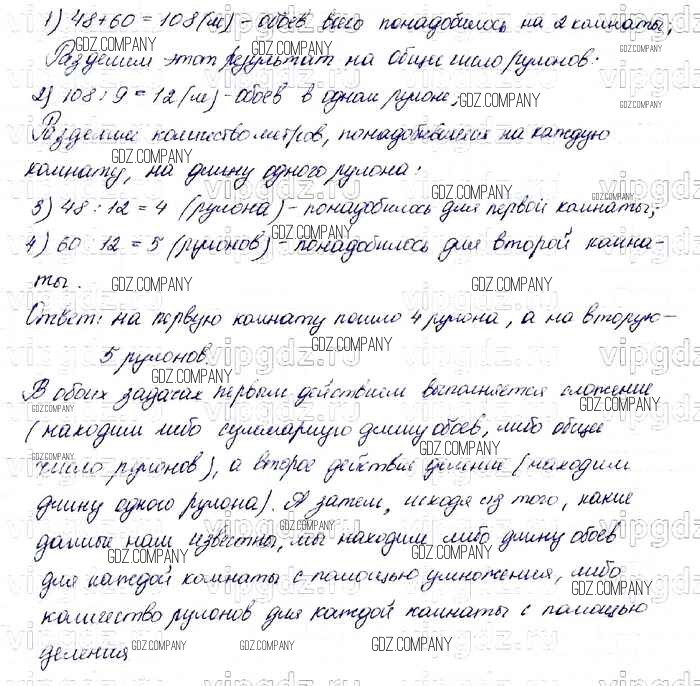 1) 48+60=108(м) - обоев всего понадобилось на 2 комнаты;
Разделим этот результат на общее число рулонов:
2) 108:9=12(м) - обоев в одном рулоне;
Разделим количество метров, понадобившееся на каждую
комнату, на длину одного рулона:
3) 48:12=4 (рулона) - понадобилось для первой комнаты;
4) 60:12=5 (рулонов) - понадобилось для второй комна-
ты.
Ответ: на первую комнату пошло 4 рулона, а на вторую-
5 рулонов.
В обоих задачах первым действием выполняется сложение
(находим либо суммарную длину обоев, либо общее
число рулонов), а второе действие деление (находим
длину одного рулона). А затем, исходя из того, какие
данные нам известны, мы находим либо длину обоев
для каждой комнаты с помощью умножения, либо
количество рулонов для каждой комнаты с помощью
деления